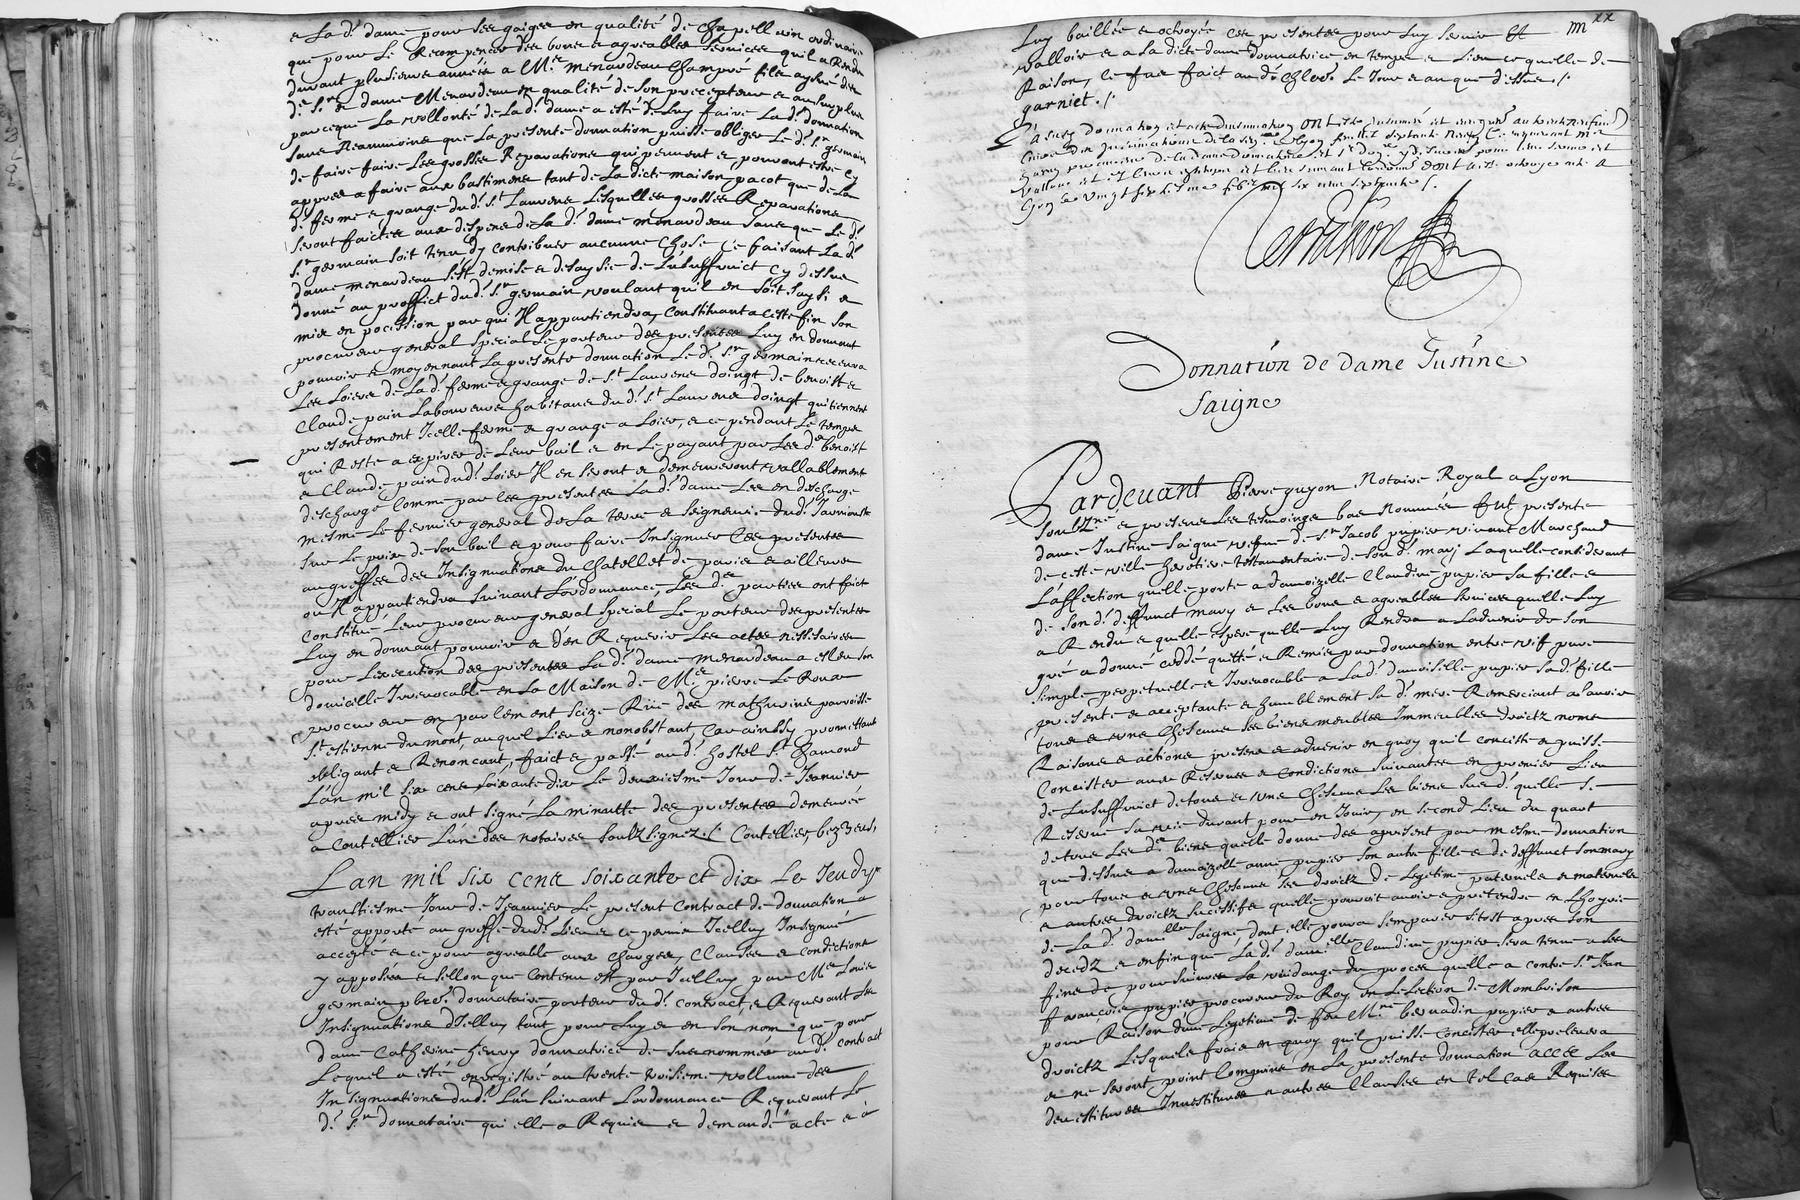 a La d. dame pour ses gaiges en qualité de chapellain ordinaire
que pour le Recompencer des bons et agreables services quil a Rendu
durant plusieurs années a Mre Menardeau Champré filz aysné des
d. Sr et dame Menardeau en qualité de son precepteur et au surplus
parceque La vollonté de La d. dame a esté de luy faire La d. donnation
sans Neanmoins que La presente donnation puisse obliger Le d. Sr germain
de faire faire Les grosses Reparations qui peuvent et pourront estre cy
appres a faire aux bastimens tant de La dicte maison pacot que de La
d. ferme et grange du d. St Laurens Lesquelles grosses Reparations
seront faictes aux despens de La d. dame menardeau sans que Le d.
Sr germain soit tenu dy contribuer aucunne chose Ce faisant La d.
dame menardeau sest demise et desaysie de Lusuffruict cy dessus
donné au proffict du d. Sr germain voulant qu'il en soit saysi et
mis en pocession par qui Il appartiendra, Constituant a ceste fin son
procureur general special Le porteur des presentes Luy en donnant
pouvoir et moyennant La presente donnation Le d. Sr germain recevra
Les Loiers de La d. ferme et grange de St Laurens doingt de benoist et
Claude pain Laboureurs habitans du d. St Laurens doingt qui tiennent
presentement Icelle ferme et grange a Loier, et ce pendant Le temps
qui Reste a expirer de Leur bail et en Le payant par Les d. benoist
et Claude pain du d. Loier Il en seront et demeureront vallablement
deschargé Comme par Les presentes La d. dame Les en descharge
mesme Le fermier general de La terre et seigneurie du d.
sur Le prix de son bail et pour faire Insignuer Ces presentes
au greffes des Insignuations du Chatellet de paris et ailleurs
ou Il appartiendra suivant Lordonnance, Les d. parties ont faict
constitué Leur procureur general special Le porteur des presentes
Luy en donnant pouvoir et d'en Requerir Les actes nessesaires
pour Lexecution des presentes La d. dame menardeau a esleu son
domicille Irrevocable en La Maison de Mre pierre Le Roux
procureur en parlement seize Rue des mathurins parroisse
St estienne du mont, auquel Lieu et nonobstant, Car ainsy promettant
obligant et Renoncant, faict et passé au d. hostel St Chamond
L'an mil six cens soixante dix Le deuxiesme Jour de Jeanvier
apres midy et ont signé La minutte des presentes demeurée
a Coutellier Lun des notaires soubz signez ./. Coutellier, bezeus,
Lan mil six cent soixante et dix Le Jeudy
tranttiesme Jour de Jeanvier Le present contract de donnation a
esté apporté au greffe du d. Lieu et ce pernis Icelluy Insignué
accepté et ce pour agreable aux charges, Clauses et condictions
y apposées et sellon que Contenu est par Icelluy par Mre Louis
germain pbre donnataire porteur du d. contract, et Requerant Les
Insignuations d'Icelluy tant pour Luy et en son nom que pour
dame Catherine henry donnatrice de surnommée au d. contract
Lequel a esté enregistré au trente troisieme vollume des
Insignuations du d. Lieu suivant Lordonnance Requerant Le
d. Sr donnataire qui elle a Requis et demandé acte et a
Luy baillée et octroyée ces presentes pour Luy servir Et
valloir et a La dicte dame donnatrice en temps et Lieu ce quelle de
Raison, Ce fut faict au d. Le Jour et an que dessus ./.
garnier ./.
vingt sept mil six cens septante ./.
Donnation de dame Justine
Saigne
Pardevant Pierre guyon Notaire Royal a Lyon
soubz.ne et presens Les tesmoings bas Nommées fut presente
dame Justine Saigne vefve de Sr Jacob pupier vivant Marchand
de ceste ville heretiere testamentaire de son d. mary Laquelle considerant
L'affection quelle porte a damoizelle Claudine pupier sa fille et
de son d. deffunct mary et Les bons et agreables services quelle Luy
a Rendu et quelle espere quelle Luy Rendra a Ladvenir de son
gré a donné ceddé quitté et Remis par donnation entre vif pure
simple perpetuelle et Irrevocable a La d. damoiselle pupier sa d. fille
presente et acceptante et humblement sa d. mere Remerciant a scavoir
tous et uns Chescuns ses biens meubles Immeubles droictz noms
Raisons et actions presens et advenir en quoy quil conciste et puiss.
Concister aux Reserves et Condictions suivantes en premier Lieu
de Lusuffruict de tous et uns Chescuns Les biens sus d. quelle s.
Reserve sa vie durant pour en Jouir, en second Lieu du quart
de tous Les d. biens quelle donne des apresent par mesme donnation
que dessus a damoizelle anne pupier son autre fille et de deffunct son mary
pour tous et uns Chescuns ses droictz de Legetime paternels et maternels
et autres droictz sucessifs quelle pouroit avoir et pretendre en Lhoyrie
de La d. damelle Saigne, dont elle poura semparer sitost apres son
decedz et enfin que La d. damelle Claudine pupier sera tenue a ses
fins de poursuivre La vuidange du proces quelle a contre Sr Jean
francois pupier procureur du Roy en Lelection de Mombrison
pour Raison d'une Legetime de feu Mre bernadin pupier et autres
droictz Lesquels frais en quoy quil puisse concister elle prelevera
et ne seront point Comprins en La presente donnation avec Les
devestitures Investitures et autres Clauses en tel cas Requises